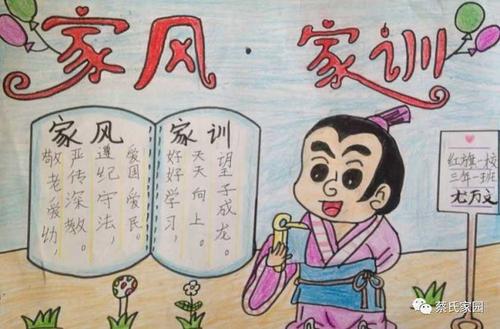 家风·家训
家风
敬老爱幼，
严传深教。
遵纪守法，
爱国爱民。
家训
好好学习，
天天向上。
望子成龙。
红旗一校
三年一班
蔡氏家园